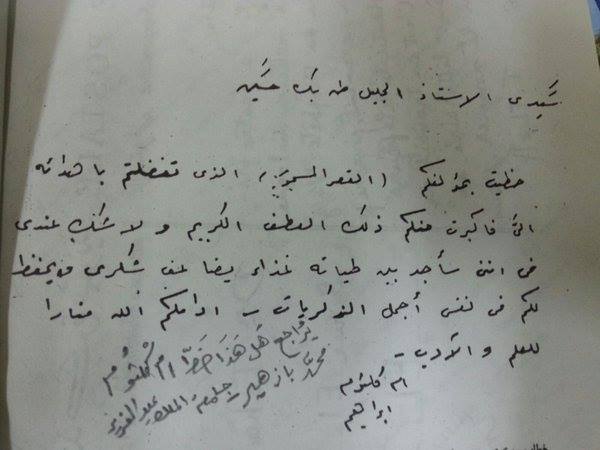 سيدى الاستاذ الجليل طه بك حسين
حظيت بمؤلفكم (القصر المسحور) الذى تفضلتم باهدائه
الىّ فاكبرت منكم ذلك العطف الكريم ولا شك عندى
فى اننى سأجد بين طياته غذاء يضاعف شكرى ويحفظ
لكم فى نفسى أجمل الذكريات - ادامكم الله منارا
للعلم والآدب -
ام كلثوم
ابراهيم
يراجع هل هذا خط ام كلثوم
محمد باذهير جامعة الملك عبدالعزيز